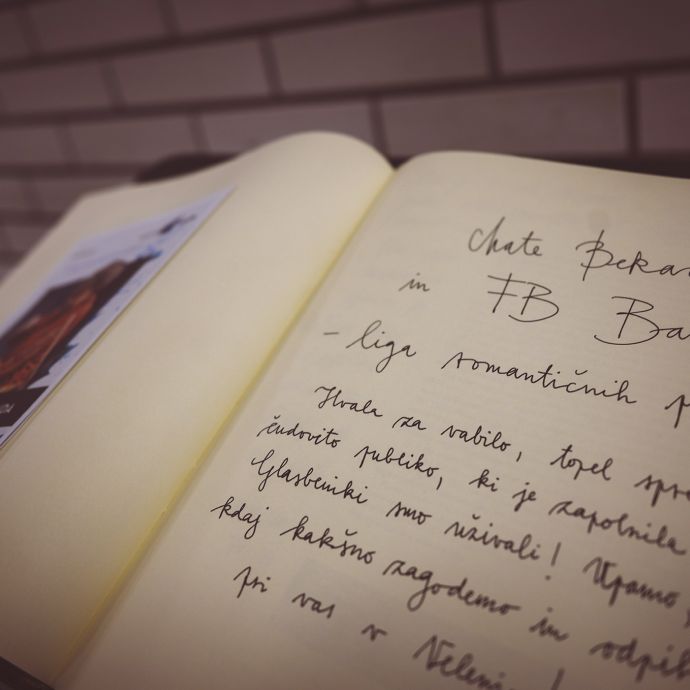 chate Beka
in FB Ba
- liga romantičnih p
Hvala za vabilo, topel spre
čudovito publiko, ki je zapolnila
Glasbeniki smo uživali! Upamo,
kdaj kakšno zagodemo in odpih
pri vas v Velenj !